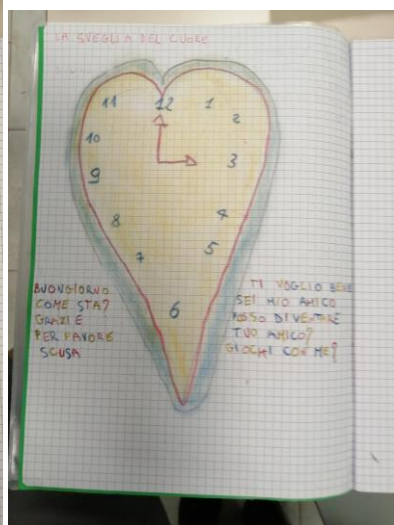 LA SVEGLIA DEL CUORE
11 12 1
2
10
3
9
8
4
7
5
6
BUONGIORNO
COME STA?
GRAZIE
PER FAVORE
SCUSA
TI VOGLIO BENE
SEI MIO AMICO
POSSO DIVENTARE
TUO AMICO?
GIOCHI CON ME?